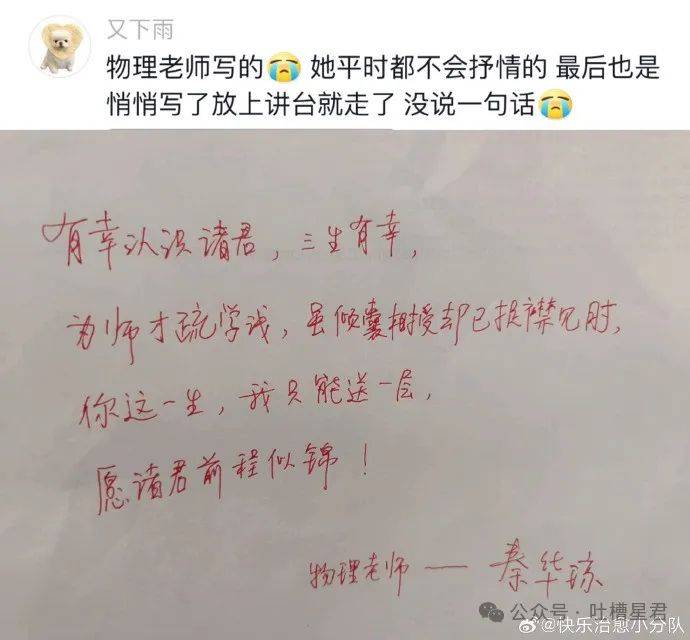 又下雨
物理老师写的😭 她平时都不会抒情的 最后也是
悄悄写了放上讲台就走了 没说一句话😭
有幸认识诸君，三生有幸，
为师才疏学浅，虽倾囊相授却已捉襟见肘，
你这一生，我只能送一层，
愿诸君前程似锦！
物理老师——秦华琼
公众号·吐槽星君
@快乐治愈小分队